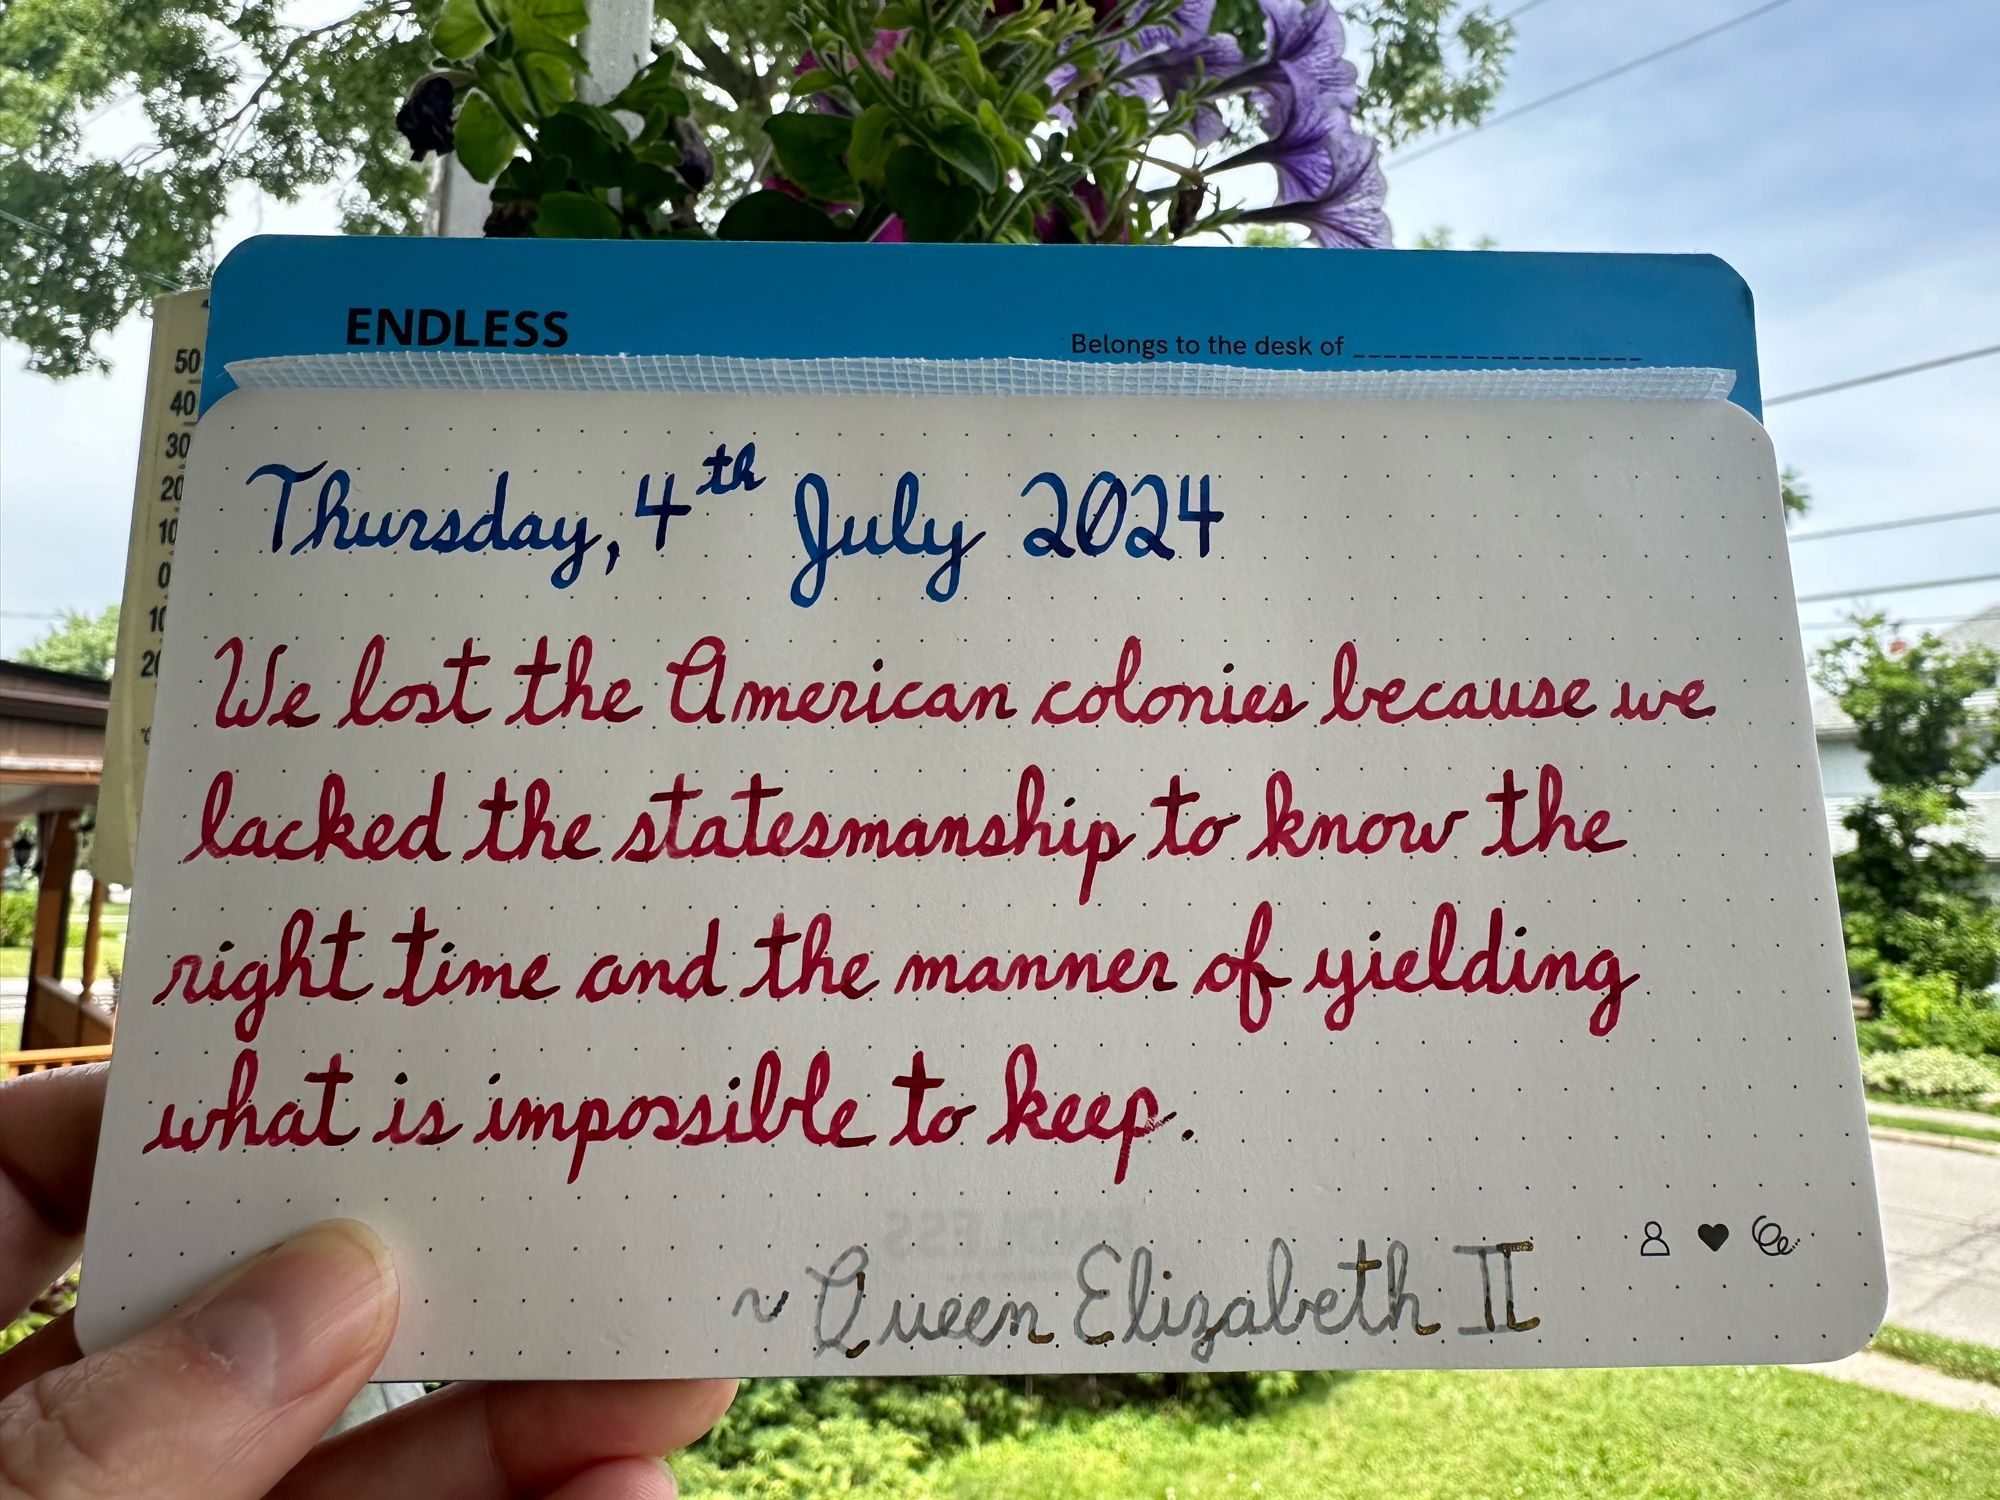 ENDLESS
Belongs to the desk of
50
40
30
20
10
0
10
Thursday, 4th July 2024
We lost the American colonies because we
lacked the statesmanship to know the
right time and the manner of yielding
what is impossible to keep.
ENDLESS
~ Queen Elizabeth II